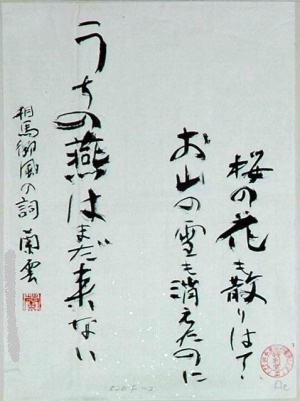 桜の花も散りはて
お山の雪も消えたのに
うちの燕はまだ来ない
相馬御風の詞 蘭雲